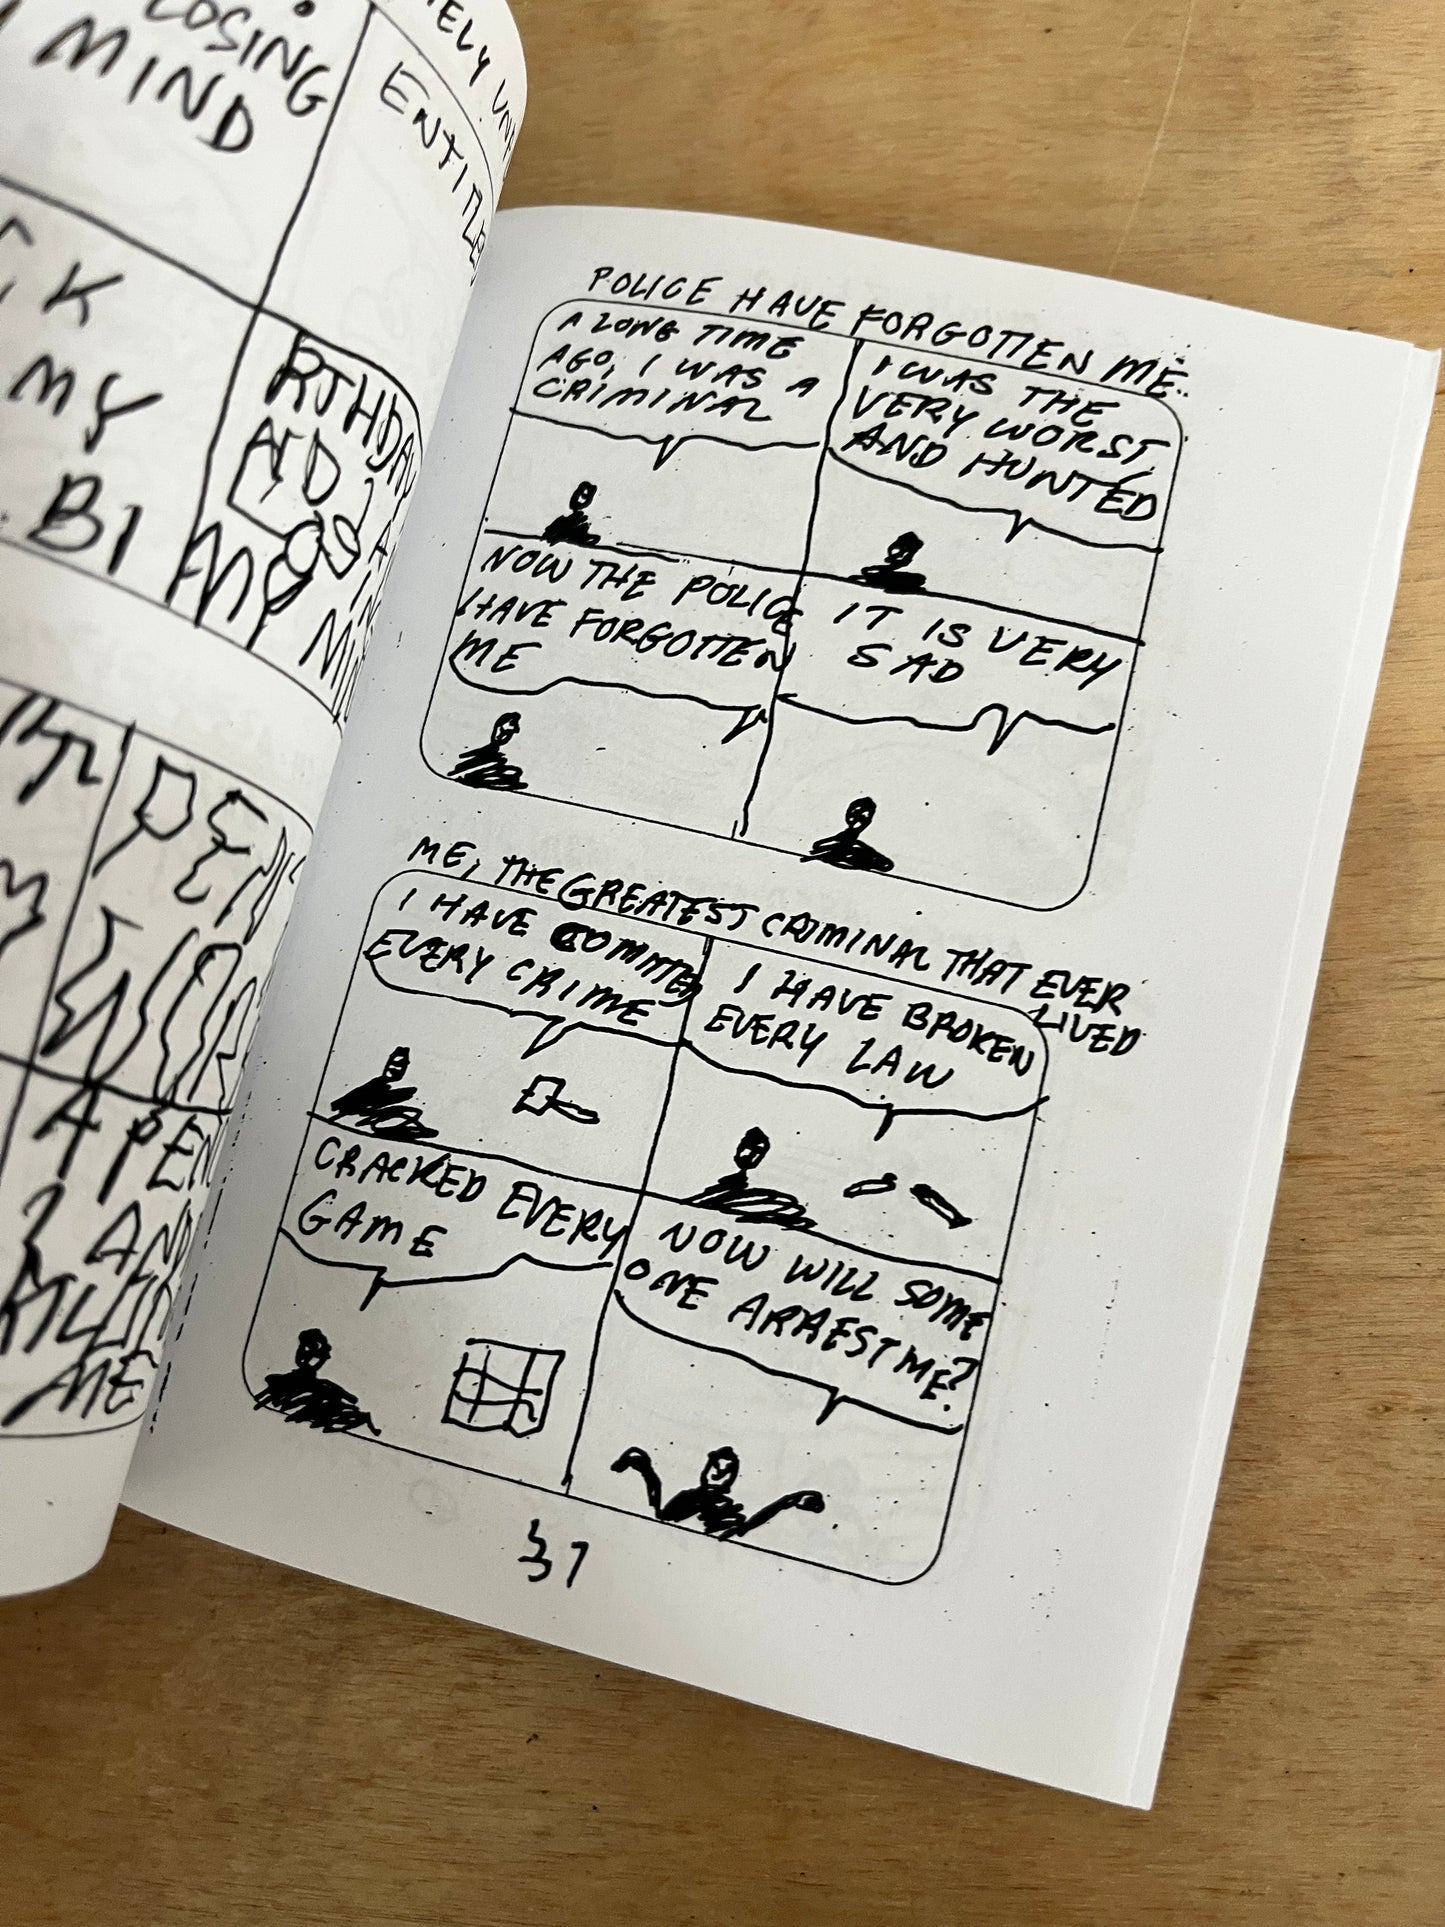 LOSING
MIND
ENTITLE
CK
MY
BI
RTHDAY
AND
MY
PEN
A PEN
AND
ME
POLICE HAVE FORGOTTEN ME.
A LONG TIME
AGO, I WAS A
CRIMINAL
I WAS THE
VERY WORST,
AND HUNTED
NOW THE POLICE
HAVE FORGOTTEN
ME
IT IS VERY
SAD
ME, THE GREATEST CRIMINAL THAT EVER
LIVED
I HAVE COMMITTED
EVERY CRIME
I HAVE BROKEN
EVERY LAW
CRACKED EVERY
GAME
NOW WILL SOME
ONE ARREST ME?
37